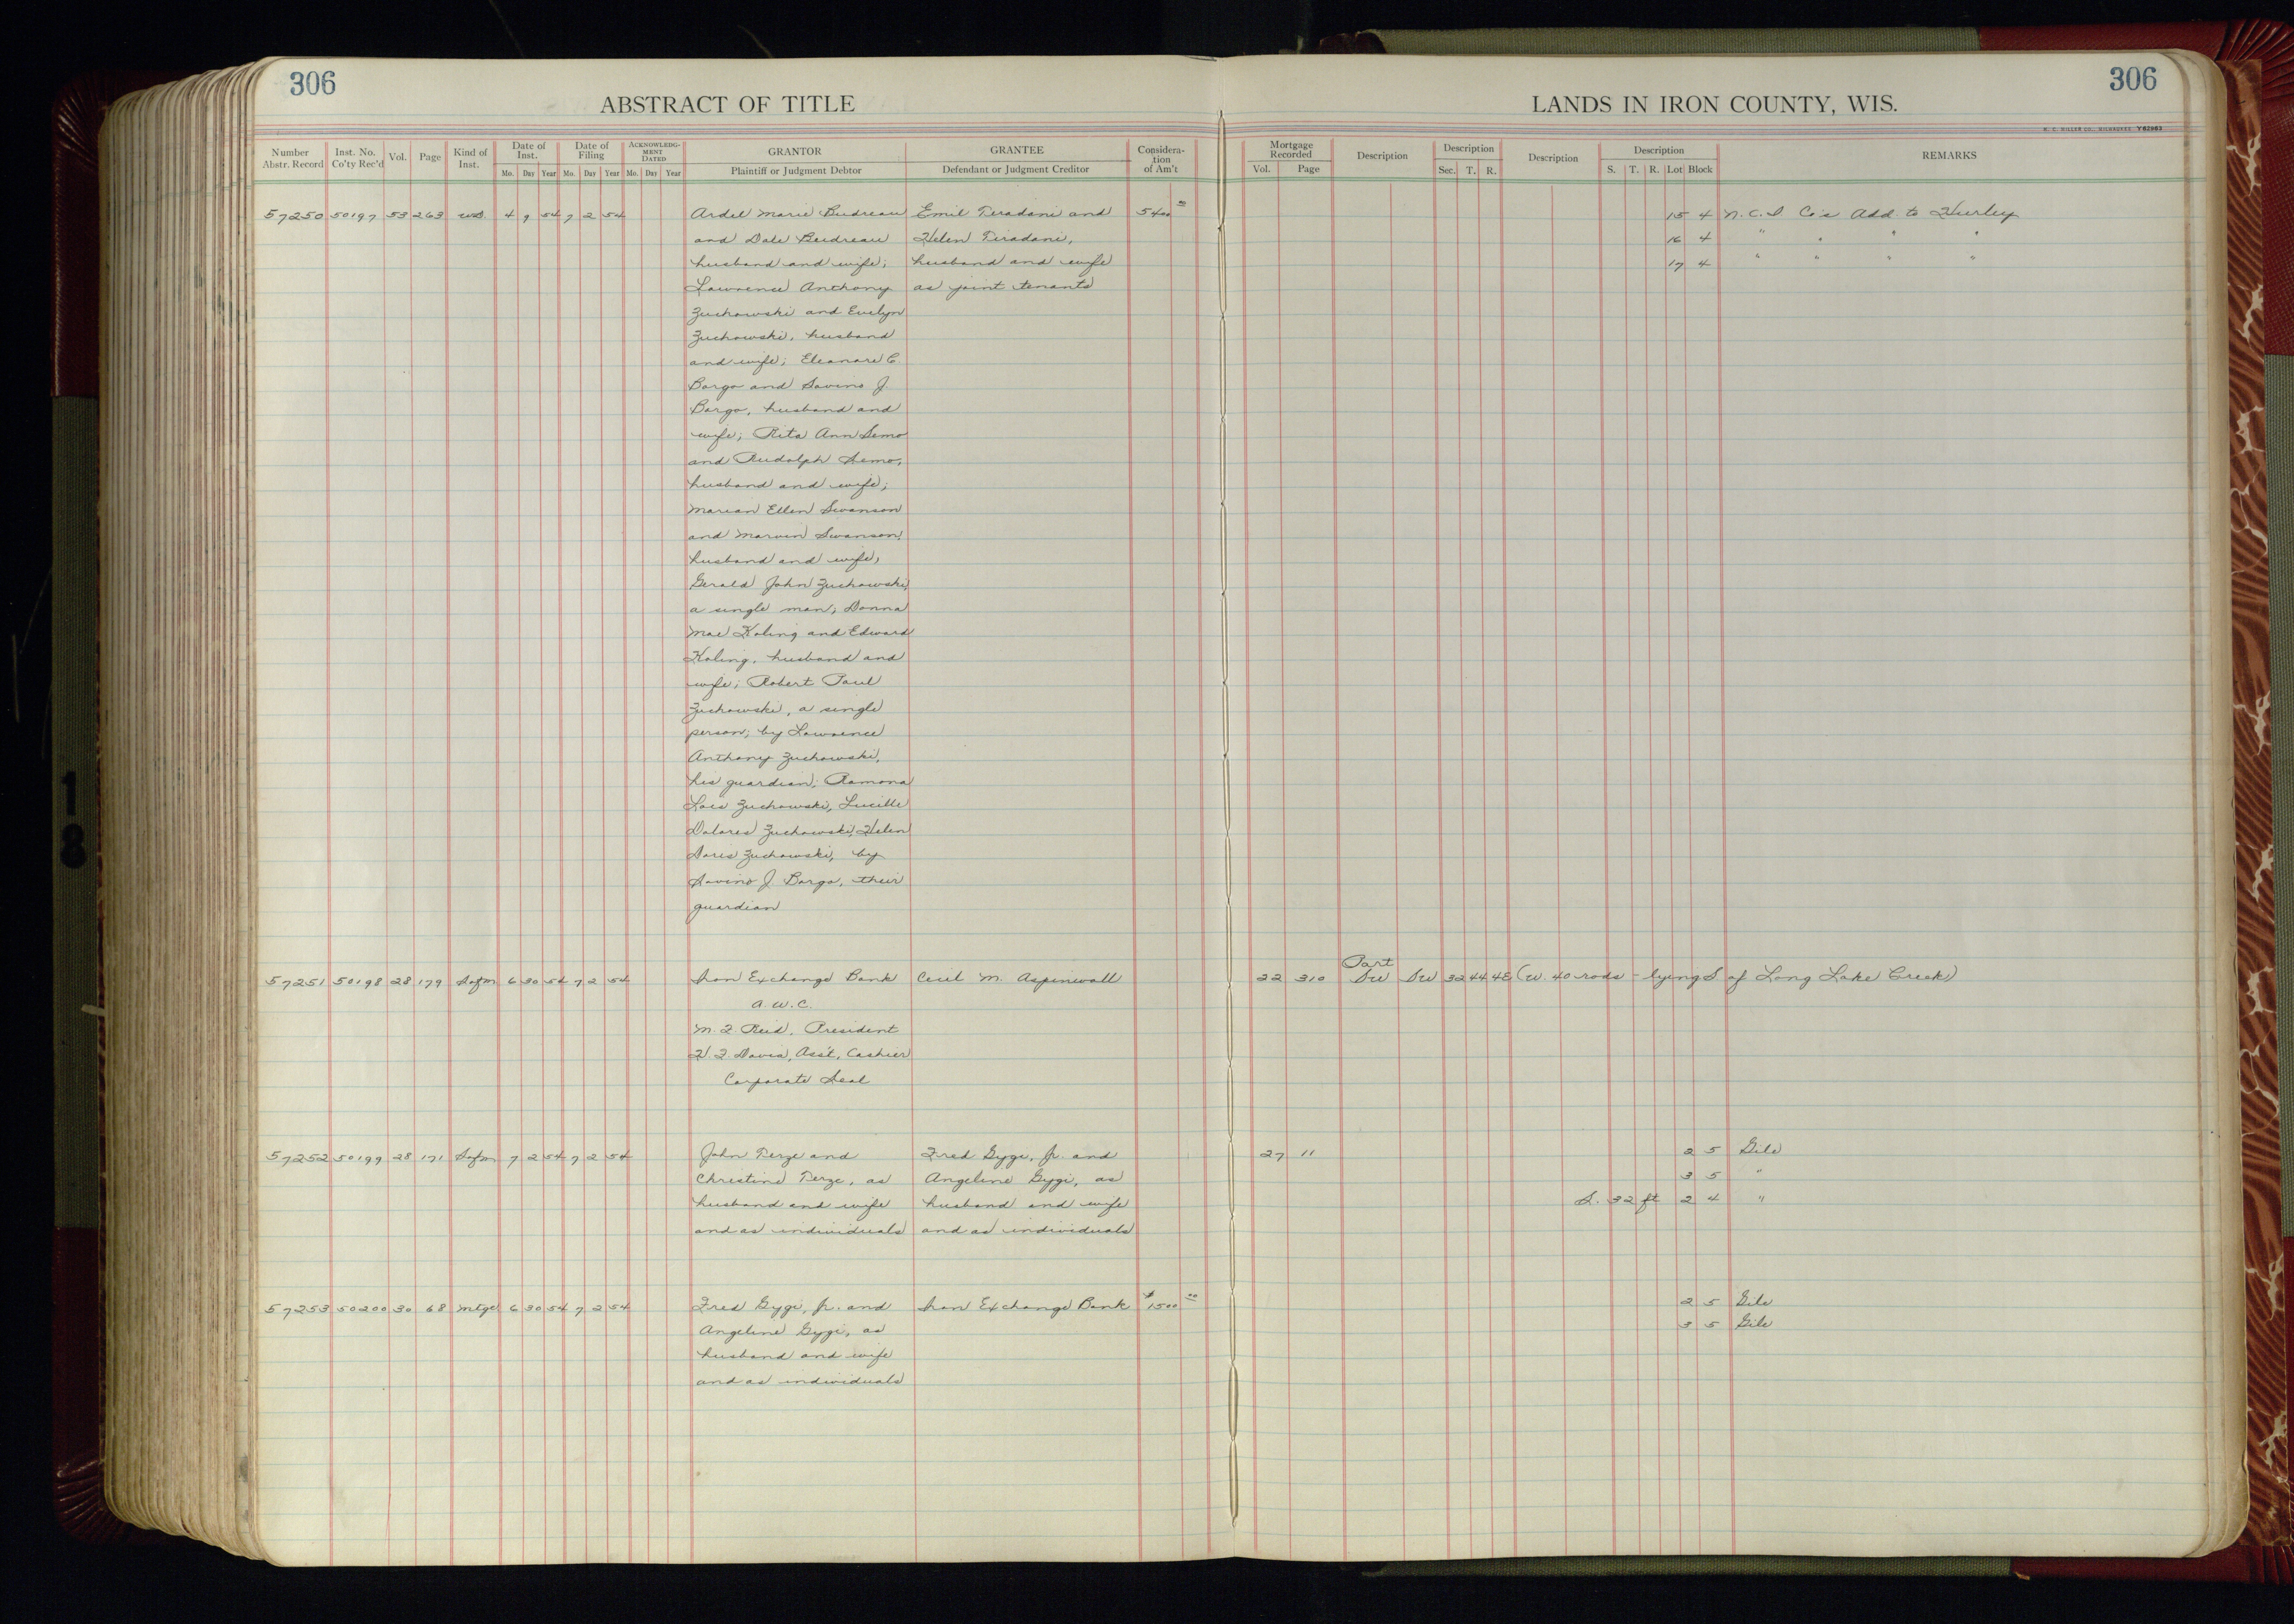 306
306
ABSTRACT OF TITLE
LANDS IN IRON COUNTY, WIS.
H. C. MILLER CO., MILWAUKEE Y62963
Number Abstr. Record
Inst. No. Co'ty Rec'd
Vol.
Page
Kind of Inst.
Date of Inst.
Mo. Day Year
Date of Filing
Mo. Day Year
ACKNOWLEDG-MENT DATED
Mo. Day Year
GRANTOR
Plaintiff or Judgment Debtor
GRANTEE
Defendant or Judgment Creditor
Considera-tion of Am't
Mortgage Recorded
Vol. Page
Description
Description
Sec. T. R.
Description
Description
S. T. R. Lot Block
REMARKS
57250 50197 53 263 W.D. 4 9 54 7 2 54 Ardel Marie Budreau Emil Tiradani and 5400 00 15 4 N.C.I. Co's Add. to Hurley
and Dale Budreau Helen Tiradani, 16 4 " " " "
husband and wife; husband and wife 17 4 " " " "
Lawrence Anthony as joint tenants
Zuchowski and Evelyn
Zuchowski, husband
and wife; Eleanore C.
Borgo and Savino J.
Borgo, husband and
wife; Rita Ann Semo
and Rudolph Semo,
husband and wife;
Marian Ellen Swanson
and Marvin Swanson,
husband and wife;
Gerald John Zuchowski,
a single man; Donna
Mae Koling and Edward
Koling, husband and
wife; Robert Paul
Zuchowski, a single
person; by Lawrence
Anthony Zuchowski,
his guardian; Ramona
Lois Zuchowski, Lucille
Dolores Zuchowski, Helen
Doris Zuchowski, by
Savino J. Borgo, their
guardian
Part
57251 50198 28 179 Safm 6 30 54 7 2 54 Iron Exchange Bank Cecil M. Aspinwall 22 310 SW SW 32 44 4E (W. 40 rods - lying S of Long Lake Creek)
A.W.C.
M.F. Reid, President
H.F. Davis, Ass't. Cashier
Corporate Seal
57252 50199 28 171 Safm 7 2 54 7 2 54 John Terze and Fred Gygi, Jr. and 27 11 2 5 Gile
Christine Terze, as Angeline Gygi, as 3 5 "
husband and wife husband and wife S. 32 ft 2 4 "
and as individuals and as individuals
57253 50200 30 68 Mtge 6 30 54 7 2 54 Fred Gygi, Jr. and Iron Exchange Bank $1500 00 2 5 Gile
Angeline Gygi, as 3 5 Gile
husband and wife
and as individuals
18